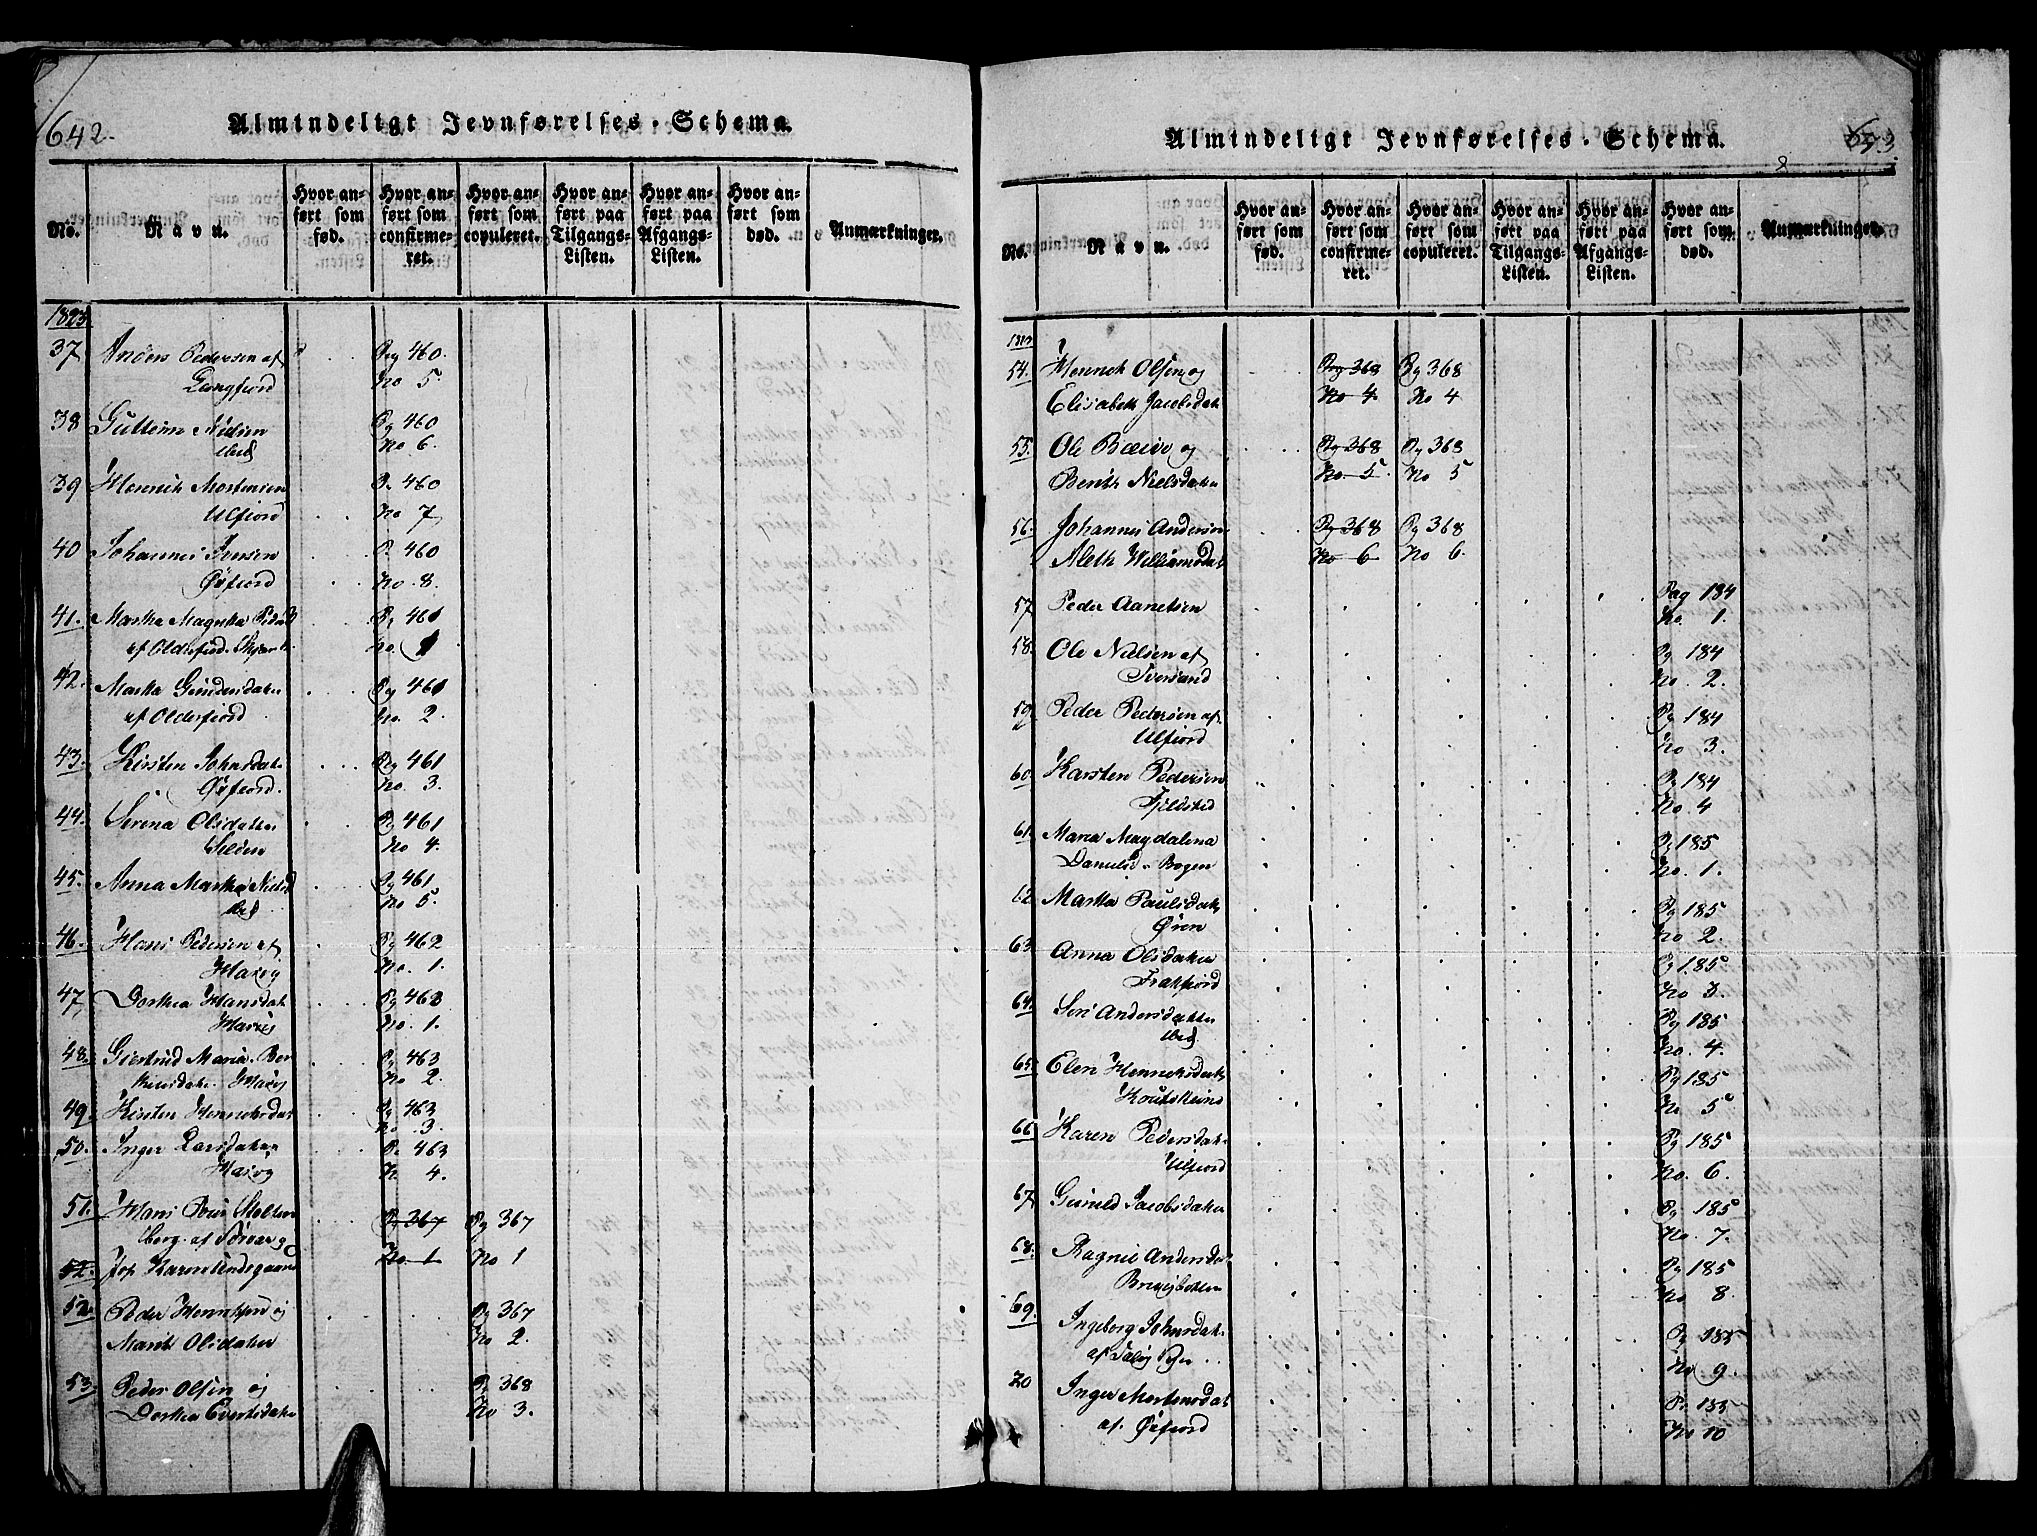 642.
Almindeligt Jevnførelses-Schema.
No.
Navn.
Hvor anført som fød.
Hvor anført som confirmeret.
Hvor anført som copuleret.
Hvor anført paa Tilgangs-Listen.
Hvor anført paa Afgangs-Listen.
Hvor anført som død.
Anmærkninger.
1823.
37 Anders Pedersen af Pag 460.
Langfiord No 5.
38 Guttorm Nielsen Pg 460
ibid No 6.
39 Henrich Mortensen P. 460
Ulfiord No 7
40 Johannes Jensen P. 460
Øxfiord No 8.
41. Martha Magretha Peders Pg 461
af Olderfiord No 1
42. Martha Gunders datter Pg 461
af Olderfiord No. 2.
43. Kirsten Johnsdatr Pg 461
Øxfiord. No. 3.
44. Serena Olsdatter Pg 461
No 4.
45. Anna Martha Nielsd Pg 461
ibid No 5.
46. Hans Pedersen af Pg 462
Masøy No. 1.
47. Dorthea Hansdatr Pg 463
Masøy No. 1.
48. Giertrud Maria Ber Pg 463
Masøy No 2.
49. Kirsten Hennriksdat Pg 463
No 3.
50. Inger Larsdatter P. 463
Masøy N. 4.
51. Hans Pg 367 Pg 367
berg. af No 1 No 1
52. Jof Karen
52. Peder Henriksen og Pg 367
Marith Olsdatter No 2.
53. Peder Olsen og P. 368
Dorthea Evertsdatter No 3.
643.
Almindeligt Jevnførelses-Schema.
No.
Navn.
Hvor anført som fød.
Hvor anført som confirmeret.
Hvor anført som copuleret.
Hvor anført paa Tilgangs-Listen.
Hvor anført paa Afgangs-Listen.
Hvor anført som død.
Anmærkninger.
54. Henrich Olsen og Pag 368 Pg 368
Elisabeth Jacobsdatr No 4. No 4
55. Ole Bæive og Pg 368 Pg 368
Berith Nielsdatter No. 5. No 5
56. Johannes Andersen Pg 368 Pg 368
Aleth Williamsdat No 6 No 6.
57 Peder Aanetsen Pag 184
No. 1.
58. Ole Nielsen af Pg 184
No. 2.
59. Peder Pedersen af Pg 184
Ulfiord No 3.
60. Karsten Pedersen Pg 184
No. 4
61. Maria Magdalena Pg 185
Daniels. Bogen No. 1.
62. Martha Paulsdatr Pg 185
Øren No 2.
63. Anna Olsdatter Pg 185
Trætfiord No 3.
64. Siri Andersdatter Pg 185
ibid No. 4.
65. Elen Henriksdatr Pg 185
Koutokeino No 5
66. Karen Pedersdatr Pg 185
Ulfiord No. 6.
67 Gunild Jacobsdatter Pg 185
No. 7.
68. Ragnil Andersdat Pg 185
No 8.
69. Ingeborg Johnsdatr Pg 185
No 9.
70 Inger Mortensdat P. 185
af. Øxfiord No 10